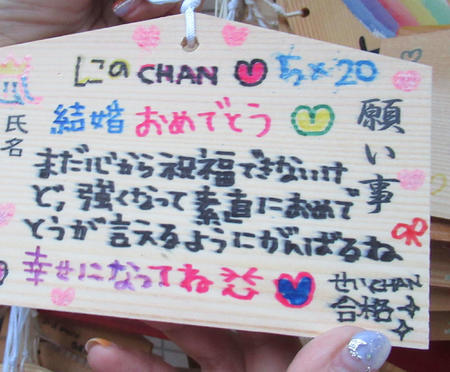 にのCHAN ちx20
結婚おめでとう
まだ心から祝福できないけ
ど,強くなって素直におめで
とうが言えるようにがんばるね
幸せになってね
願い事
氏名
せいCHAN
合格